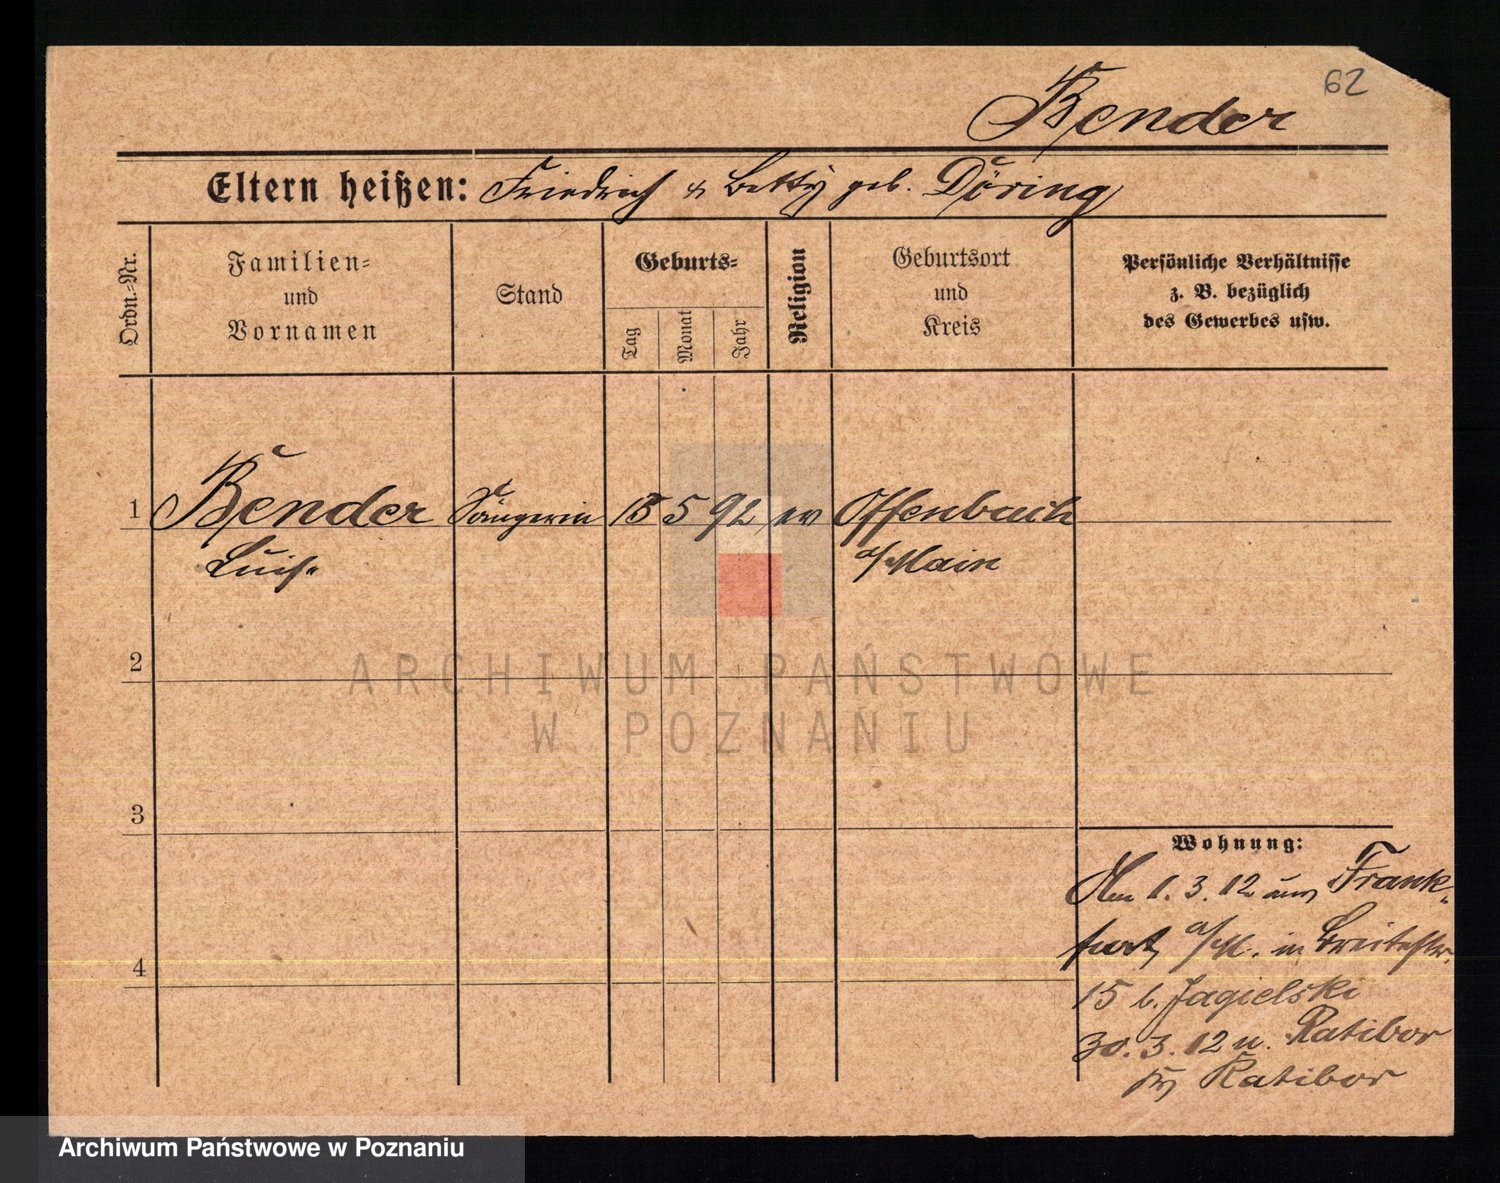 62
Bender
Eltern heißen: Friedrich & Betty geb. Döring
Ordn.-Nr.
Familien-
und
Vornamen
Stand
Geburts-
Tag
Monat
Jahr
Religion
Geburtsort
und
Kreis
Persönliche Verhältnisse
z. B. bezüglich
des Gewerbes usw.
1 Bender Sängerin 5 92 ev Offenbach
Luise a/Main
ARCHIWUM PAŃSTWOWE
W POZNANIU
2
3
4
Wohnung:
Am 1. 3. 12 aus Frank-
furt a/M. in Breitestr.
15 b. Jagielski
30. 3. 12 n. Ratibor
Ratibor
Archiwum Państwowe w Poznaniu